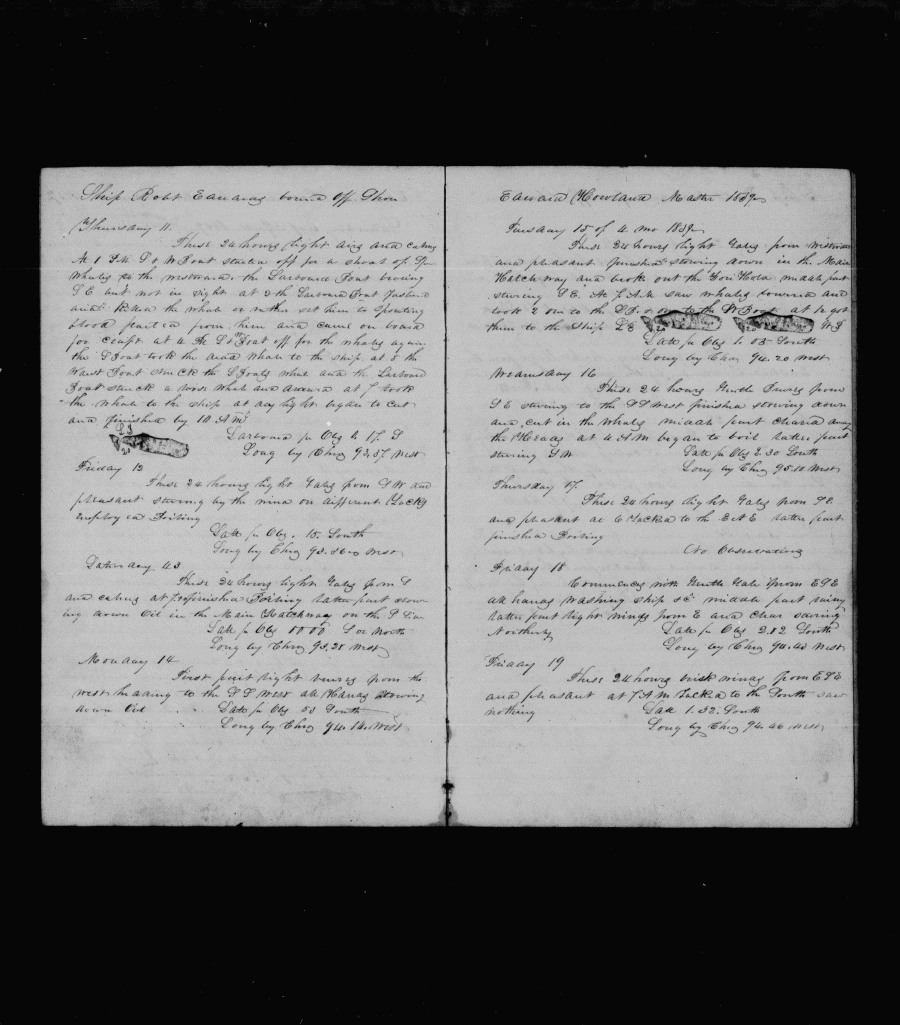 Ship Robt Edwards bound off Shore
Thursday 11.
These 24 hours light airs and calms
At 1 P.M. L & W Boat started off for a shoal of Sp
Whales to the westward. the Larboard Boat
S E but not in sight at 2 the Larboard Boat fastened
and killed the whale or rather set him to spouting
blood parted from him and came on board
for at 4 the L & Boat off for the whales again
the S Boat took the dead whale to the ship at 5 the
Waist Boat struck the S Boats whale and the Larboard
Boat struck a loose whale and at 7 took
the whale to the ship at day light began to cut
and finished by 10 A M
LB
20
Larboard pr Obs 17 S
Long by Chro 93.57 West
Friday 12
These 24 hours light Gales from S W and
pleasant steering by the wind on different Tacks
Employed Boiling
Latt pr Obs. 15. South
Long by Chro 93.36 West
Saturday 13
These 24 hours light Gales from S
and calms at finished Boiling latter part stow
ing down Oil in the Main Hatchway on the S
Latt pr Obs 00 00 S or North
Long by Chro 93.28 West
Monday 14
First part light breezes from the
west heading to the S S West all Hands Stowing
down Oil Latt pr Obs 53 South
Long by Chro 94.14 West
Edward Howland Master 1839
Tuesday 15 of 4 mo 1839
These 24 hours light Gales from westward
and pleasant finished stowing down in the Main
Hatchway and broke out the Fore Hold middle part
steering S E. At 7 A.M. saw whales lowered and
took 2 one to the L B. & one to the W Boat at 12 got
them to the ship LB W B
20 20
Latt pr Obs 1.05 South
Long by Chro 94.20 West
Wednesday 16
These 24 hours Gentle Breezes from
S E steering to the S S West finished stowing down
and cut in the whales middle part cleared away
the Heads at 4 A M began to boil latter part
steering S W Latt pr Obs 2.30 South
Long by Chro 95.10 West
Thursday 17.
These 24 hours light Gales from S E
and pleasant at 6 Tacked to the E & E latter part
finished Boiling
No Observations
Friday 18
Commences with Gentle Gale from E S E
all hands Washing ship &c middle part rainy
latter part light winds from E and clear steering
Northerly Latt pr Obs 2.12 South
Long by Chro 94.43 West
Friday 19
These 24 hours brisk winds from E S E
and pleasant at 7 A M Tacked to the South saw
nothing Latt 1.32. South
Long by Chro 94.46 West